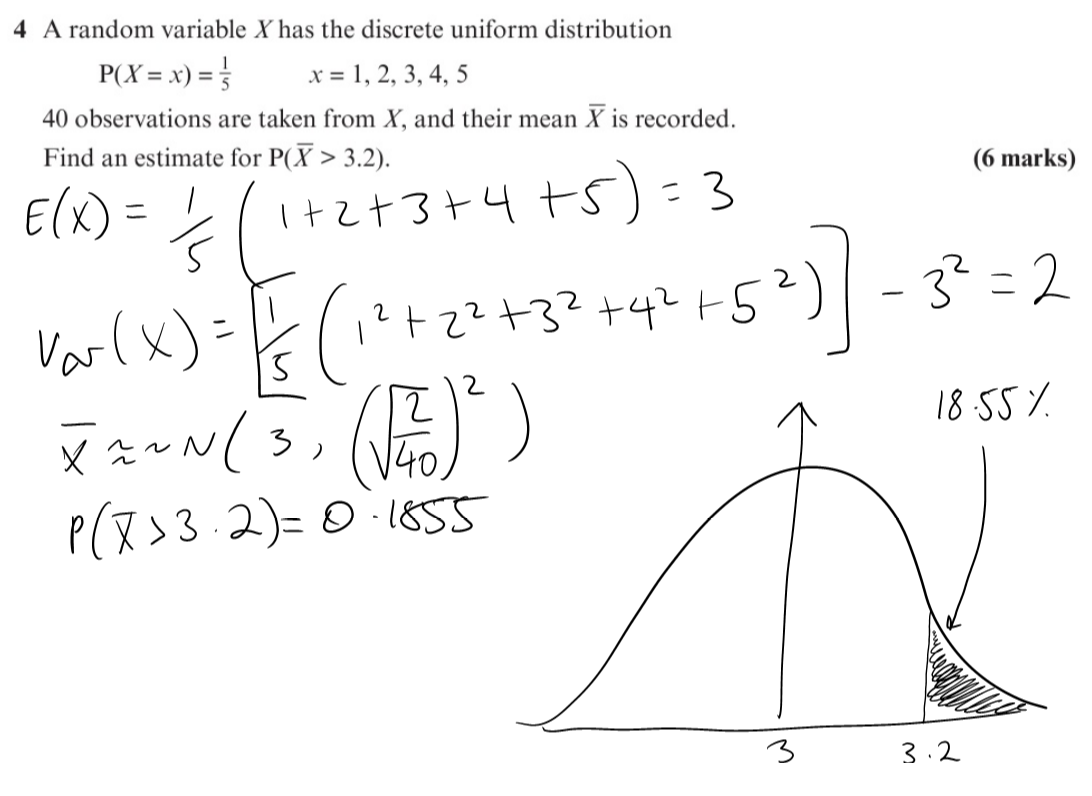 4 A random variable X has the discrete uniform distribution
P(X = x) = 1/5 x = 1, 2, 3, 4, 5
40 observations are taken from X, and their mean X̅ is recorded.
Find an estimate for P(X̅ > 3.2). (6 marks)
E(X) = 1/5 (1+2+3+4+5) = 3
Var(X) = [1/5 (1²+2²+3²+4²+5²)] - 3² = 2
X̅ ≈~N(3, (√(2/40))²)
18.55%
P(X̅>3.2)= 0.1855
3 3.2